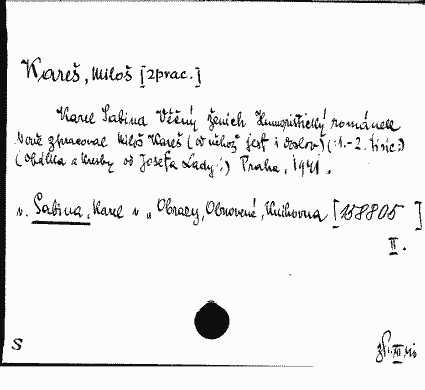 Kareš, Miloš [zprac.]
Karel Sabina Věčný ženich Humoristický románek
Nově zpracoval Miloš Kareš (od něhož jest i doslov) (:1.-2. tisíc:)
(Obálka a kresby od Josefa Lady:) Praha, 1941.
v. Sabina, Karel v „Obrazy, Obnovené, Knihovna [158805]
II.
S